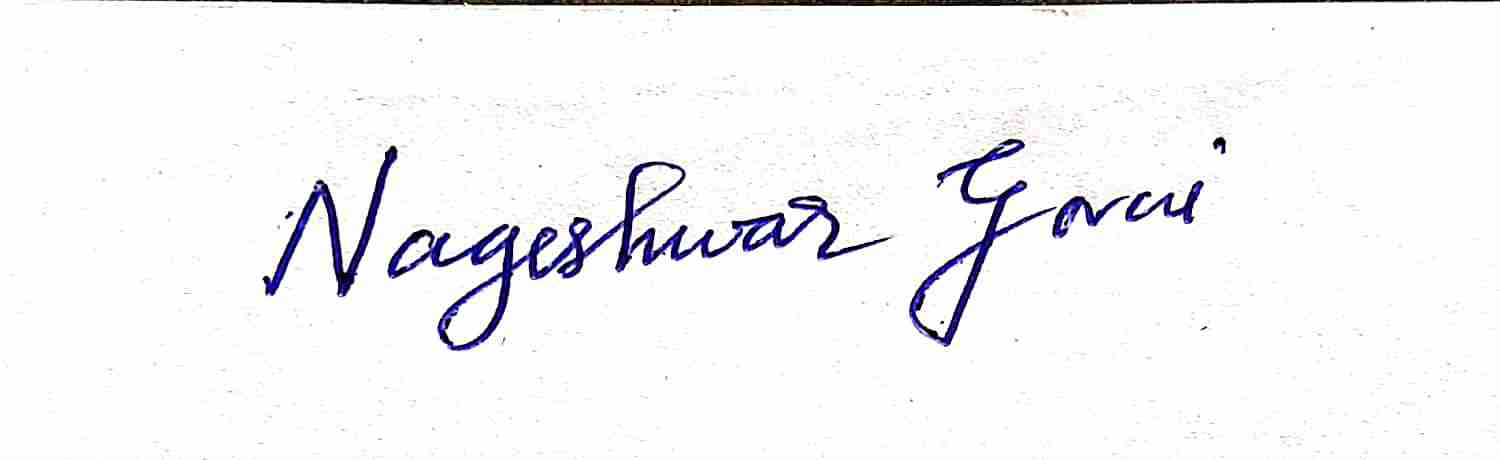 Nageshwar Gorai